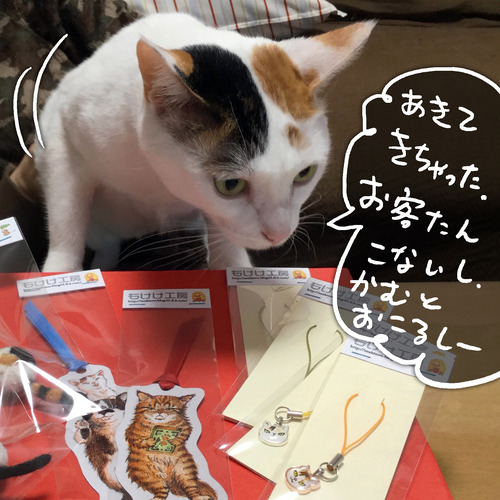 あきて
きちゃった.
お客たん
こないし.
かむと
おこるしー
もけけ工房
もけけ工房
もけけ工房
もけけ工房